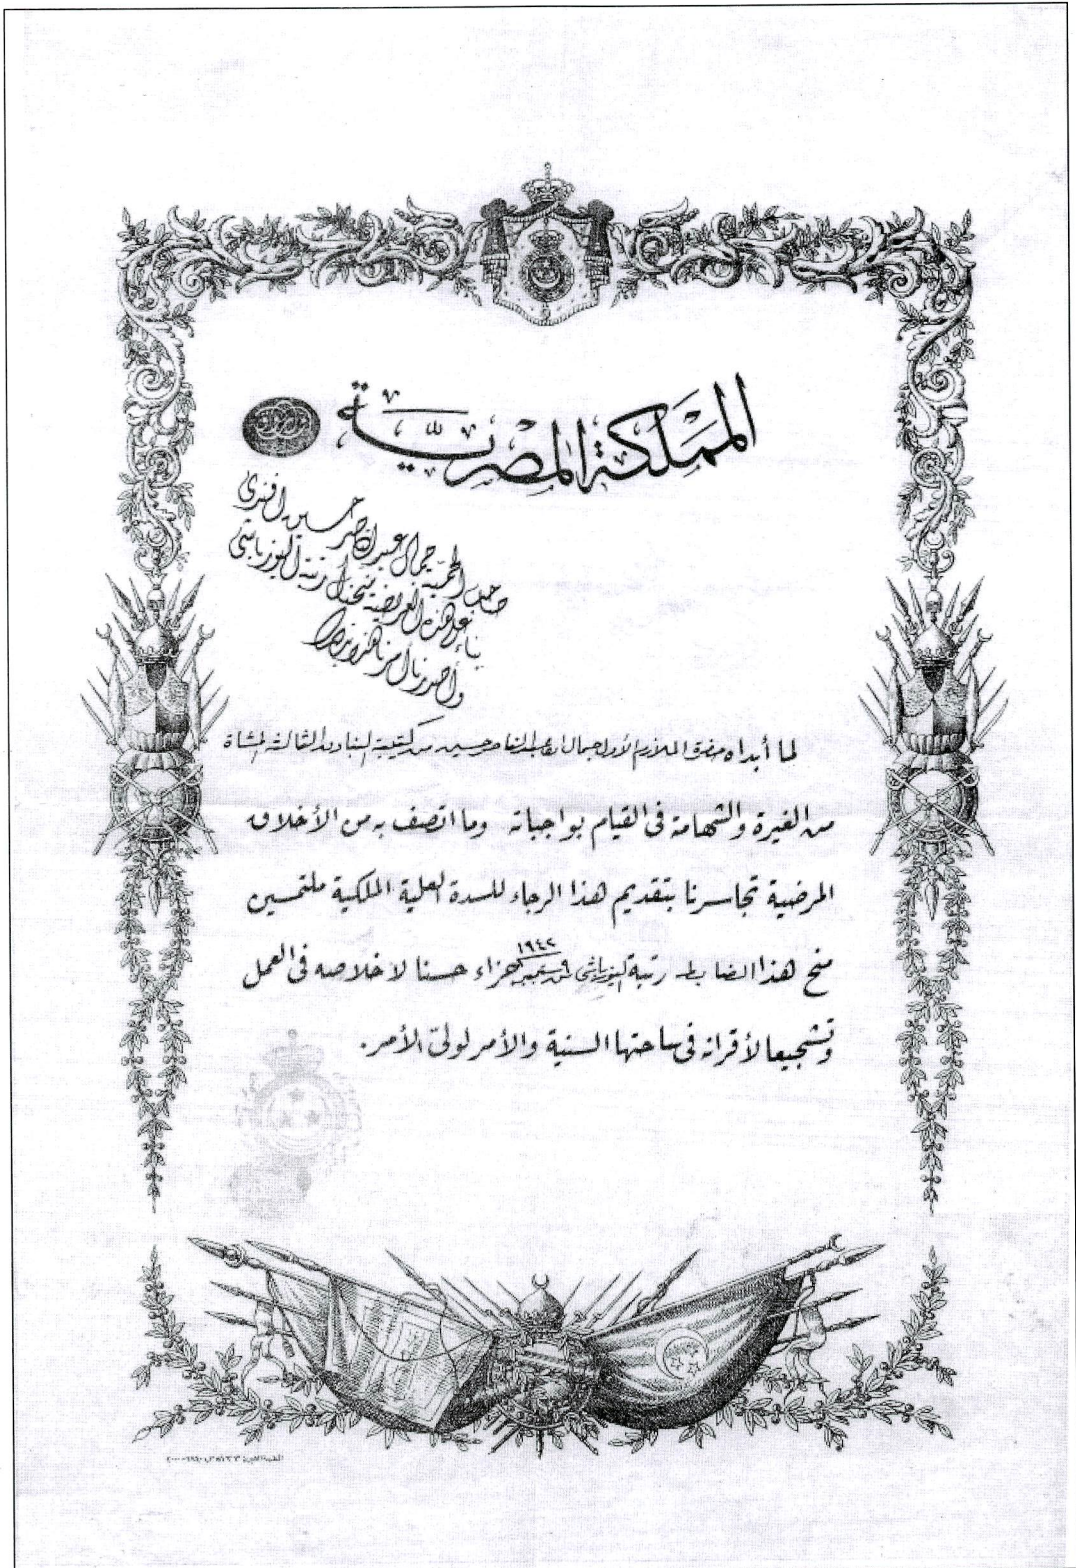 المملكة المصرية
صاحب الحمية جمال عبد الناصر حسين افندى
بناء على هذه العريضة منحناك رتبة اليوزباشى
وأصدرنا أمرنا هذا
لما أبداه حضرة الملازم الأول جمال عبد الناصر حسين من كتيبة البنادق الثالثة المشاة
من الغيرة والشهامة فى القيام بواجباته وما اتصف به من الأخلاق
المرضية تجاسرنا بتقديم هذا الرجاء للسدة العلية الملكية ملتمسين
منح هذا الضابط رتبة اليوزباشى سبتمبر ١٩٤٢ جزاء حسنا لاخلاصه فى العمل
وتشجيعا لأقرانه فى ساحتها السنية والأمر لولى الأمر.